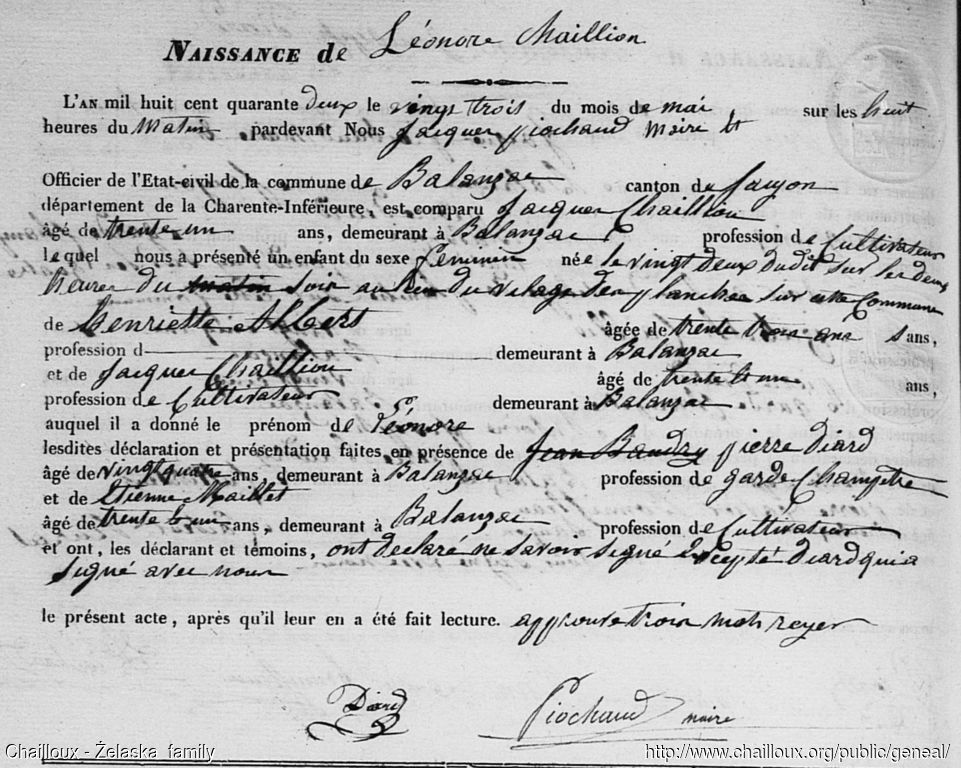 NAISSANCE de Léonore Maillion
L'AN mil huit cent quarante deux le vingt trois du mois de mai sur les huit
heures du Matin pardevant Nous Jacques Piochaud Maire et
Officier de l'Etat-civil de la commune de Balanzac canton de Saujon
département de la Charente-Inférieure, est comparu Jacques Chaillion
âgé de trente un ans, demeurant à Balanzac profession de Cultivateur
lequel nous a présenté un enfant du sexe féminin née le vingt deux dudit sur les deux
heures du matin soir au lieu du village des planches sur cette Commune
de Henriette Albers âgée de trente trois ans ans,
profession d demeurant à Balanzac
et de Jacques Chaillion âgé de trente et un ans,
profession de Cultivateur demeurant à Balanzac
auquel il a donné le prénom de Léonore
lesdites déclaration et présentation faites en présence de Jean Baudry pierre Diard
âgé de vingt quatre ans, demeurant à Balanzac profession de garde Champêtre
et de Etienne Maillet
âgé de trente et un ans, demeurant à Balanzac profession de Cultivateur
et ont, les déclarant et témoins, ont declaré ne savoir signé Excepté Diard qui a
signé avec nous
le présent acte, après qu'il leur en a été fait lecture. approuvé trois mots rayer
Diard Piochaud maire
Chailloux - Żelaska family http://www.chailloux.org/public/geneal/